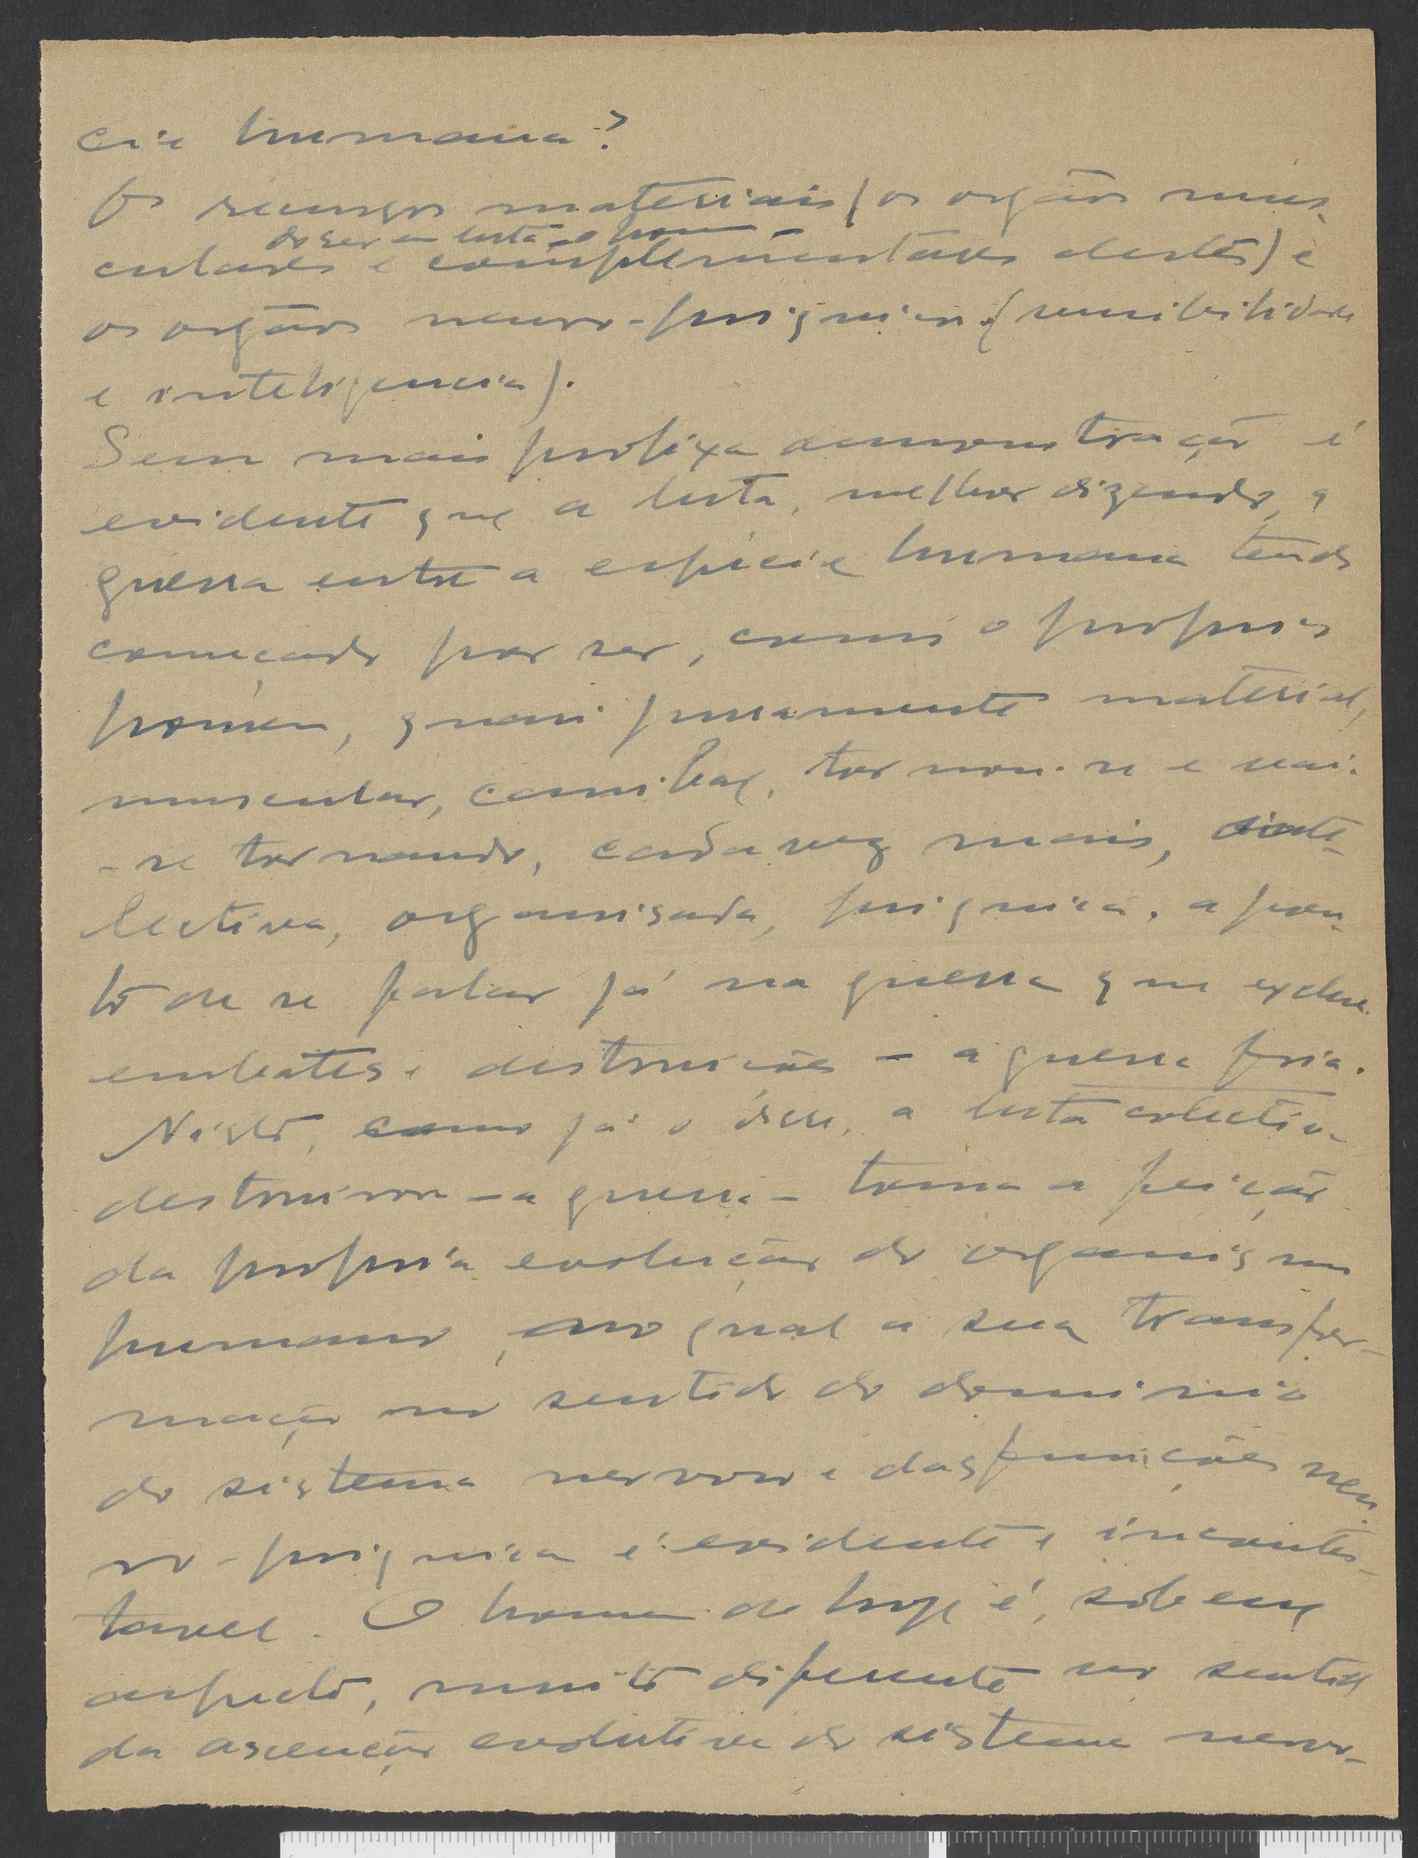 cie humana?
Os recursos materiais (os orgãos mus-
do ser em luta
culares e complementares destes) e
os orgãos neuro-psiquicos (sensibilidade
e inteligencia).
Sem mais prolixa demonstração é
evidente que a luta, melhor dizendo, a
guerra entre a espécie humana tendo
começado por ser, como o proprio
homem, quasi puramente material,
muscular, canibal, tornou-se e vai-
-se tornando, cada vez mais, inte-
lectiva, organisada, psiquica, a pon-
to de se falar já na guerra que exclue
embates e destruições - a guerra fria.
Nisto, como já o disse, a luta colectiva
destruidora - a guerra - toma a feição
da propria evolução do organismo
humano, no qual a sua transfor-
mação no sentido do dominio
do sistema nervoso e das funções neu-
ro-psiquica é evidente e incontes-
tavel. O homem de hoje é, sob esse
aspecto, muito diferente no sentido
da ascenção evolutiva do sistema nervo-